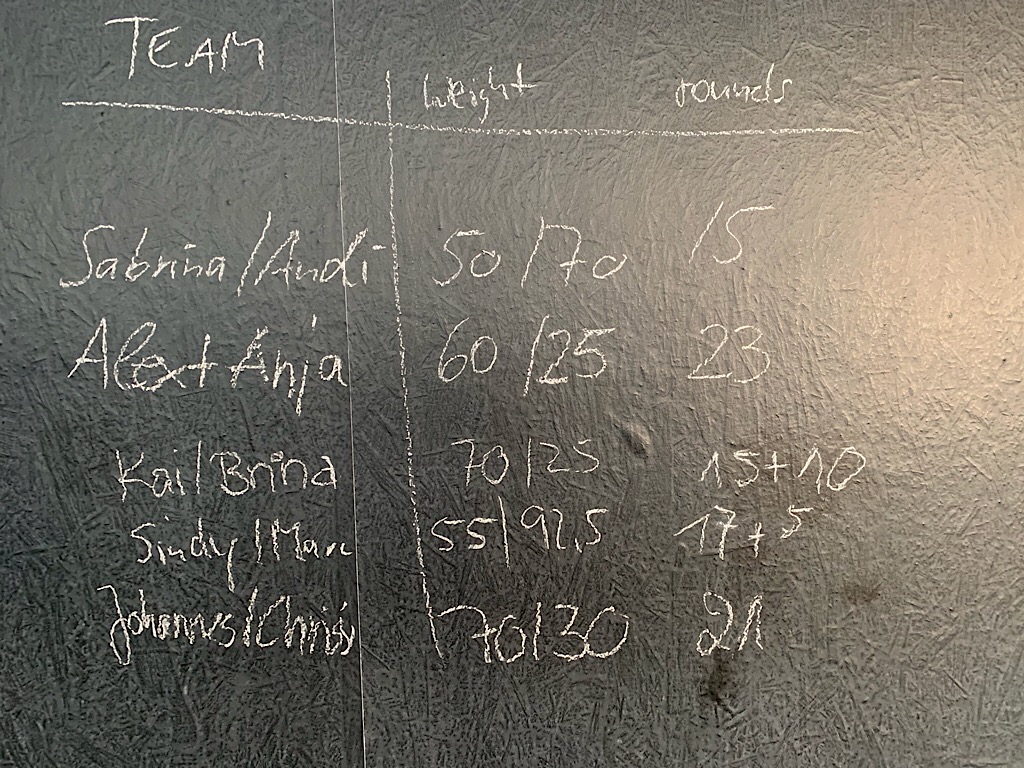 TEAM weight rounds
Sabrina/Andi 50/70 15
Alex+Anja 60/25 23
Kai/Brina 70/25 15+10
Sindy/Marc 55/92,5 17+5
Johannes/Chrissy 70/30 21